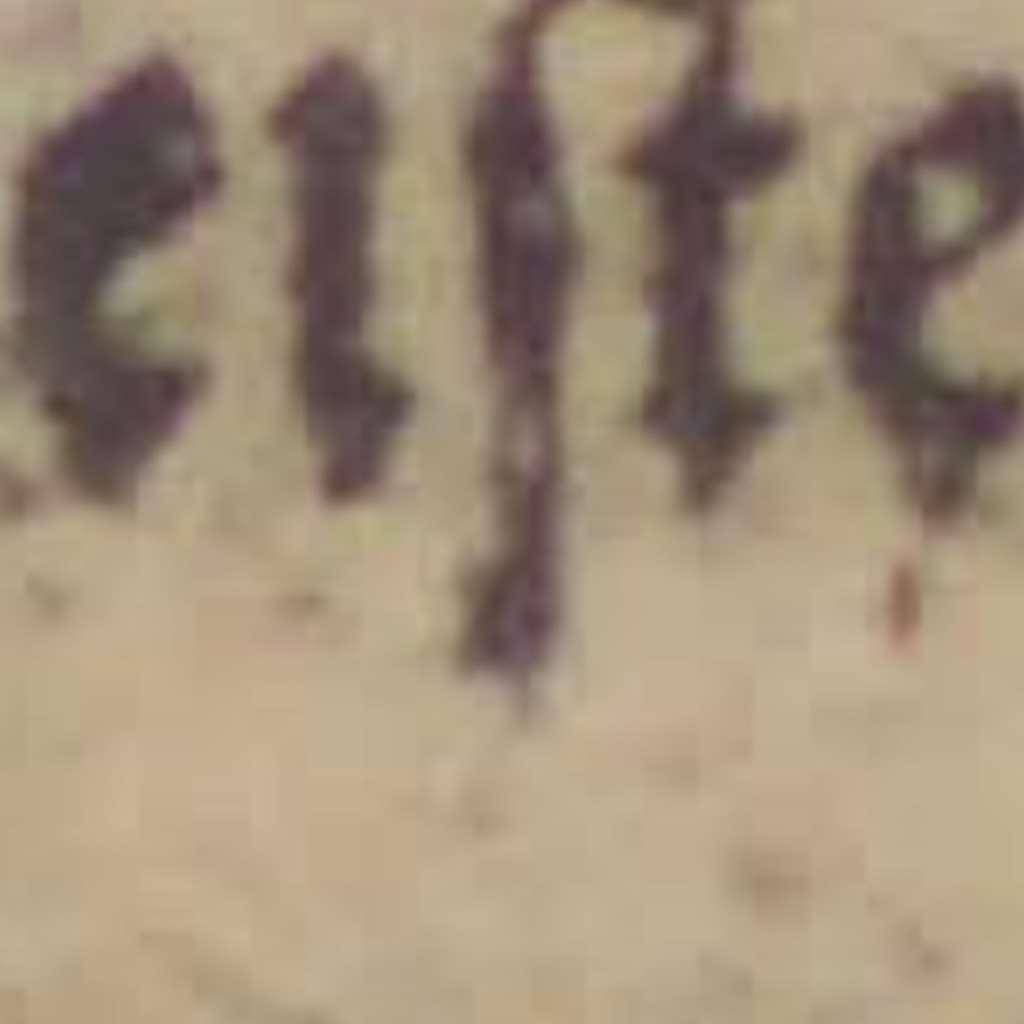 eiſte